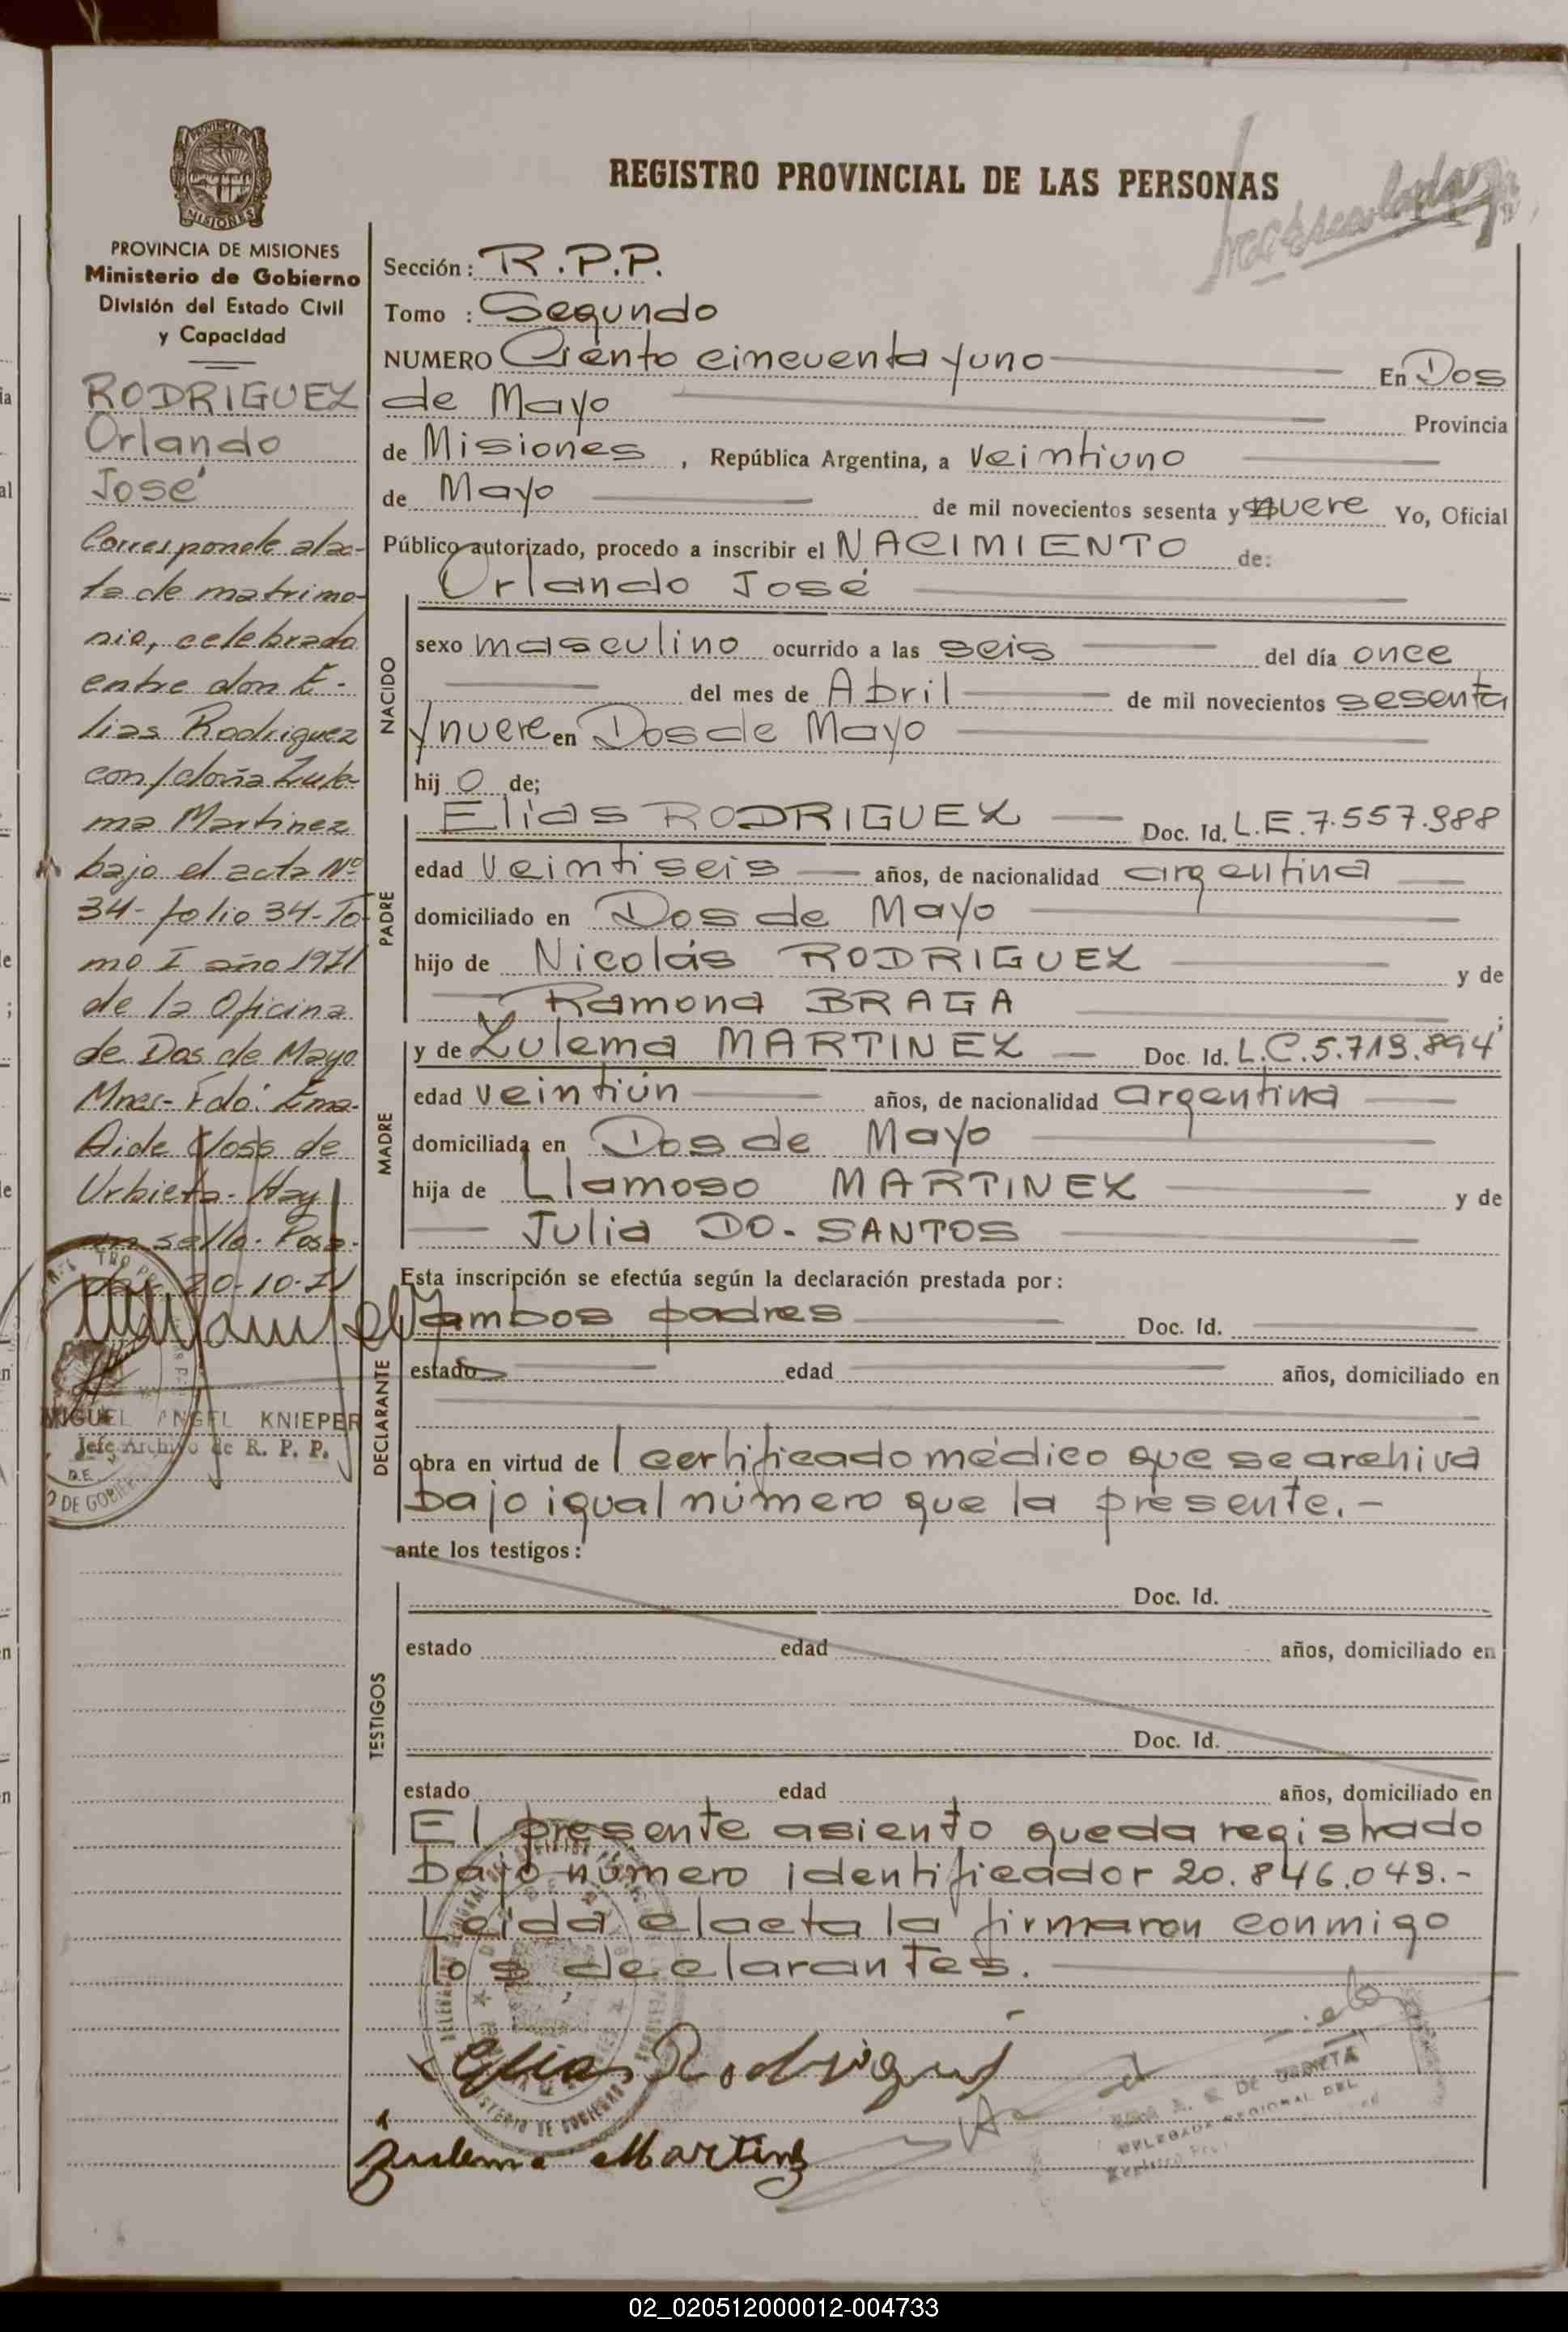 REGISTRO PROVINCIAL DE LAS PERSONAS
PROVINCIA DE
MISIONES
PROVINCIA DE MISIONES
Ministerio de Gobierno
División del Estado Civil
y Capacidad
RODRIGUEZ
Orlando
José
Corresponde alac-
ta de matrimo-
nio, celebrado
entre don E-
lias Rodriguez
con/doña Zule-
ma Martinez
bajo el acta Nº
34- folio 34-To-
mo I año 1971
de la Oficina
de Dos de Mayo
Mnes- Fdo: Ema-
Aide Closs de
Urbieta- Hay
un sello- Posa-
das 20-10-71
MIGUEL ANGEL KNIEPER
Jefe Archivo de R. P. P.
Sección: R.P.P.
Tomo : Segundo
NUMERO Ciento cincuenta yuno En Dos
de Mayo Provincia
de Misiones, República Argentina, a veintiuno
de Mayo de mil novecientos sesenta y nueve Yo, Oficial
Público autorizado, procedo a inscribir el NACIMIENTO de:
Orlando José
NACIDO
sexo masculino ocurrido a las seis del día once
del mes de Abril de mil novecientos sesenta
y nueve en Dos de Mayo
hijo de;
PADRE
Elías RODRIGUEZ Doc. Id. L.E.7.557.988
edad veintiseis años, de nacionalidad argentina
domiciliado en Dos de Mayo
hijo de Nicolás RODRIGUEZ y de
Ramona BRAGA ;
MADRE
y de Zulema MARTINEZ Doc. Id. L.C.5.719.894
edad veintiún años, de nacionalidad argentina
domiciliada en Dos de Mayo
hija de Llamoso MARTINEZ y de
Julia DO-SANTOS
Esta inscripción se efectúa según la declaración prestada por:
DECLARANTE
ambos padres Doc. Id.
estado edad años, domiciliado en
obra en virtud de l certificado médico que se archiva
bajo igual número que la presente.-
ante los testigos:
TESTIGOS
Doc. Id.
estado edad años, domiciliado en
Doc. Id.
estado edad años, domiciliado en
El presente asiento queda registrado
bajo número identificador 20.846.049.-
Leída el acta la firmaron conmigo
los declarantes.
Elias Rodriguez
Zulema Martinez
DE URBIETA
DELEGADA REGIONAL DEL
02_020512000012-004733